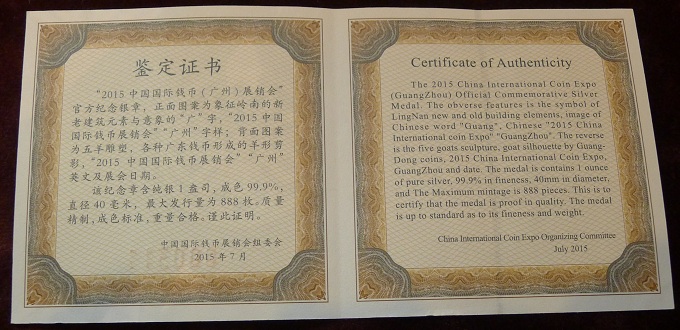 鉴定证书
“2015 中国国际钱币(广州)展销会”
官方纪念银章，正面图案为象征岭南的新
老建筑元素与意象的“广”字，“2015 中国
国际钱币展销会”“广州”字样；背面图案
为五羊雕塑，各种广东钱币形成的羊形剪
影，“2015 中国国际钱币展销会”“广州”
英文及展会日期。
该纪念章含纯银 1 盎司，成色 99.9%，
直径 40 毫米，最大发行量为 888 枚。质量
精制，成色标准，重量合格。谨此证明。
中国国际钱币展销会组委会
2015 年 7 月
Certificate of Authenticity
The 2015 China International Coin Expo
(GuangZhou) Official Commemorative Silver
Medal. The obverse features is the symbol of
LingNan new and old building elements, image of
Chinese word "Guang", Chinese "2015 China
International coin Expo" "GuangZhou". The reverse
is the five goats sculpture, goat silhouette by Guang-
Dong coins, 2015 China International Coin Expo,
GuangZhou and date. The medal is contains 1 ounce
of pure silver, 99.9% in fineness, 40mm in diameter,
and The Maximum mintage is 888 pieces. This is to
certify that the medal is proof in quality. The medal
is up to standard as to its fineness and weight.
China International Coin Expo Organizing Committee
July 2015